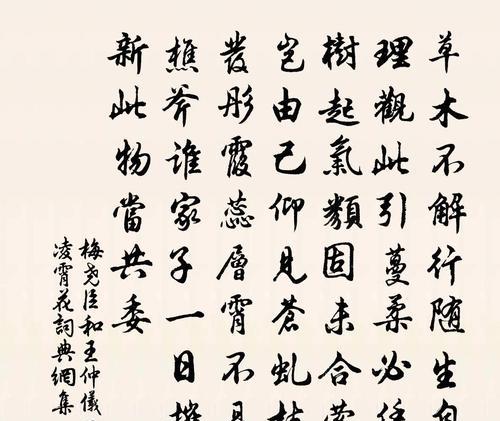 草木不解行随生
理觀此引蔓柔必
樹起氣類固未合
豈由己仰見蒼虬
發彤霞蕊層霄不
樵斧誰家子一日
新此物當共委
梅尧臣和王仲儀
凌霄花詞典網集